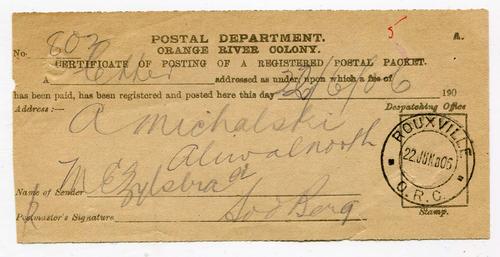 POSTAL DEPARTMENT. A.
ORANGE RIVER COLONY.
No. 802
CERTIFICATE OF POSTING OF A REGISTERED POSTAL PACKET.
A Letter addressed as under, upon which a fee of
has been paid, has been registered and posted here this day 22/6/06 190
Address :— Despatching Office
A Michalski
Aliwal north
ROUXVILLE
22 JUN 06
O.R.C.
Name of Sender M E Zylstra
Postmaster's Signature Stamp.